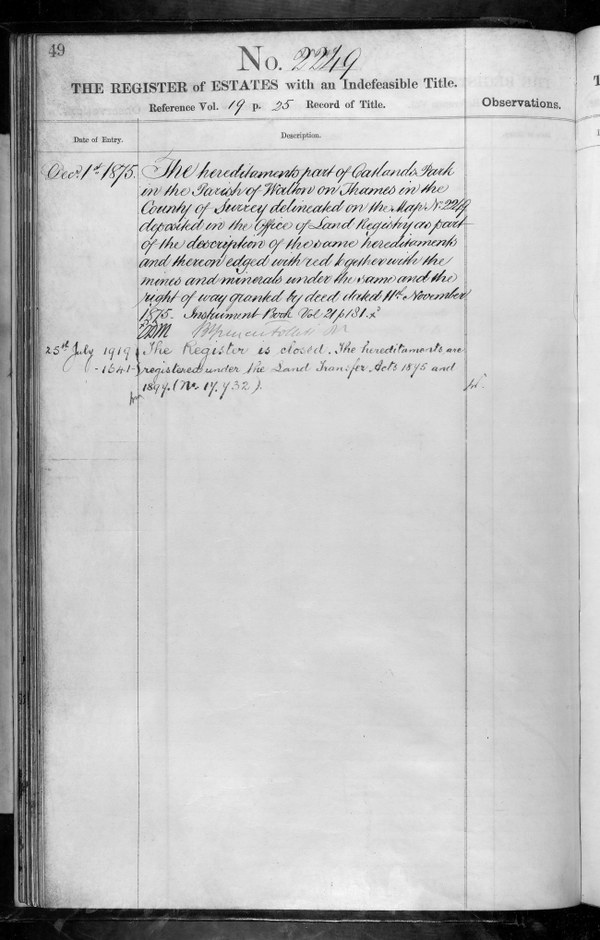 49
No. 2249
THE REGISTER of ESTATES with an Indefeasible Title.
Reference Vol. 19 p. 25 Record of Title.
Observations.
Date of Entry.
Description.
Decr. 1st 1875. The hereditaments part of Oatlands Park
in the Parish of Walton on Thames in the
County of Surrey delineated on the Map No. 2249
deposited in the Office of Land Registry as part
of the description of the same hereditaments
and thereon edged with red together with the
mines and minerals under the same and the
right of way granted by deed dated 11th November
1875. Instrument Book Vol 21 p 131.
25th July 1919 The Register is closed. The hereditaments are
-1541- registered under the Land Transfer Acts 1875 and
1897. (No. 17,732).